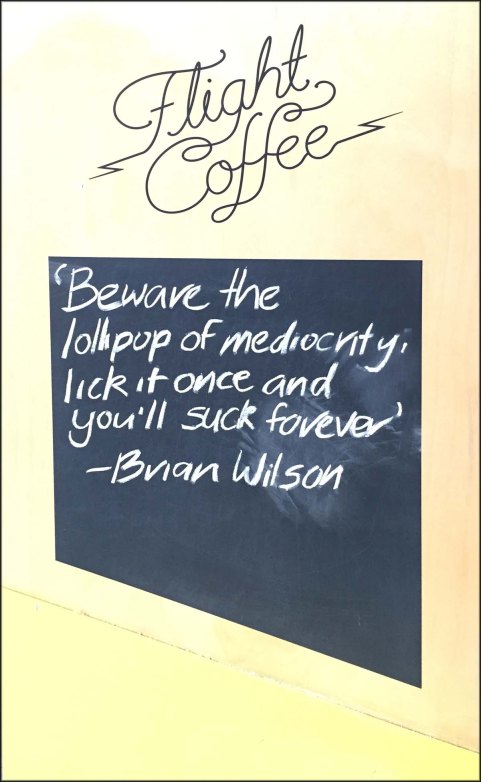 Flight
Coffee
'Beware the
lollipop of mediocrity,
lick it once and
you'll suck forever'
-Brian Wilson